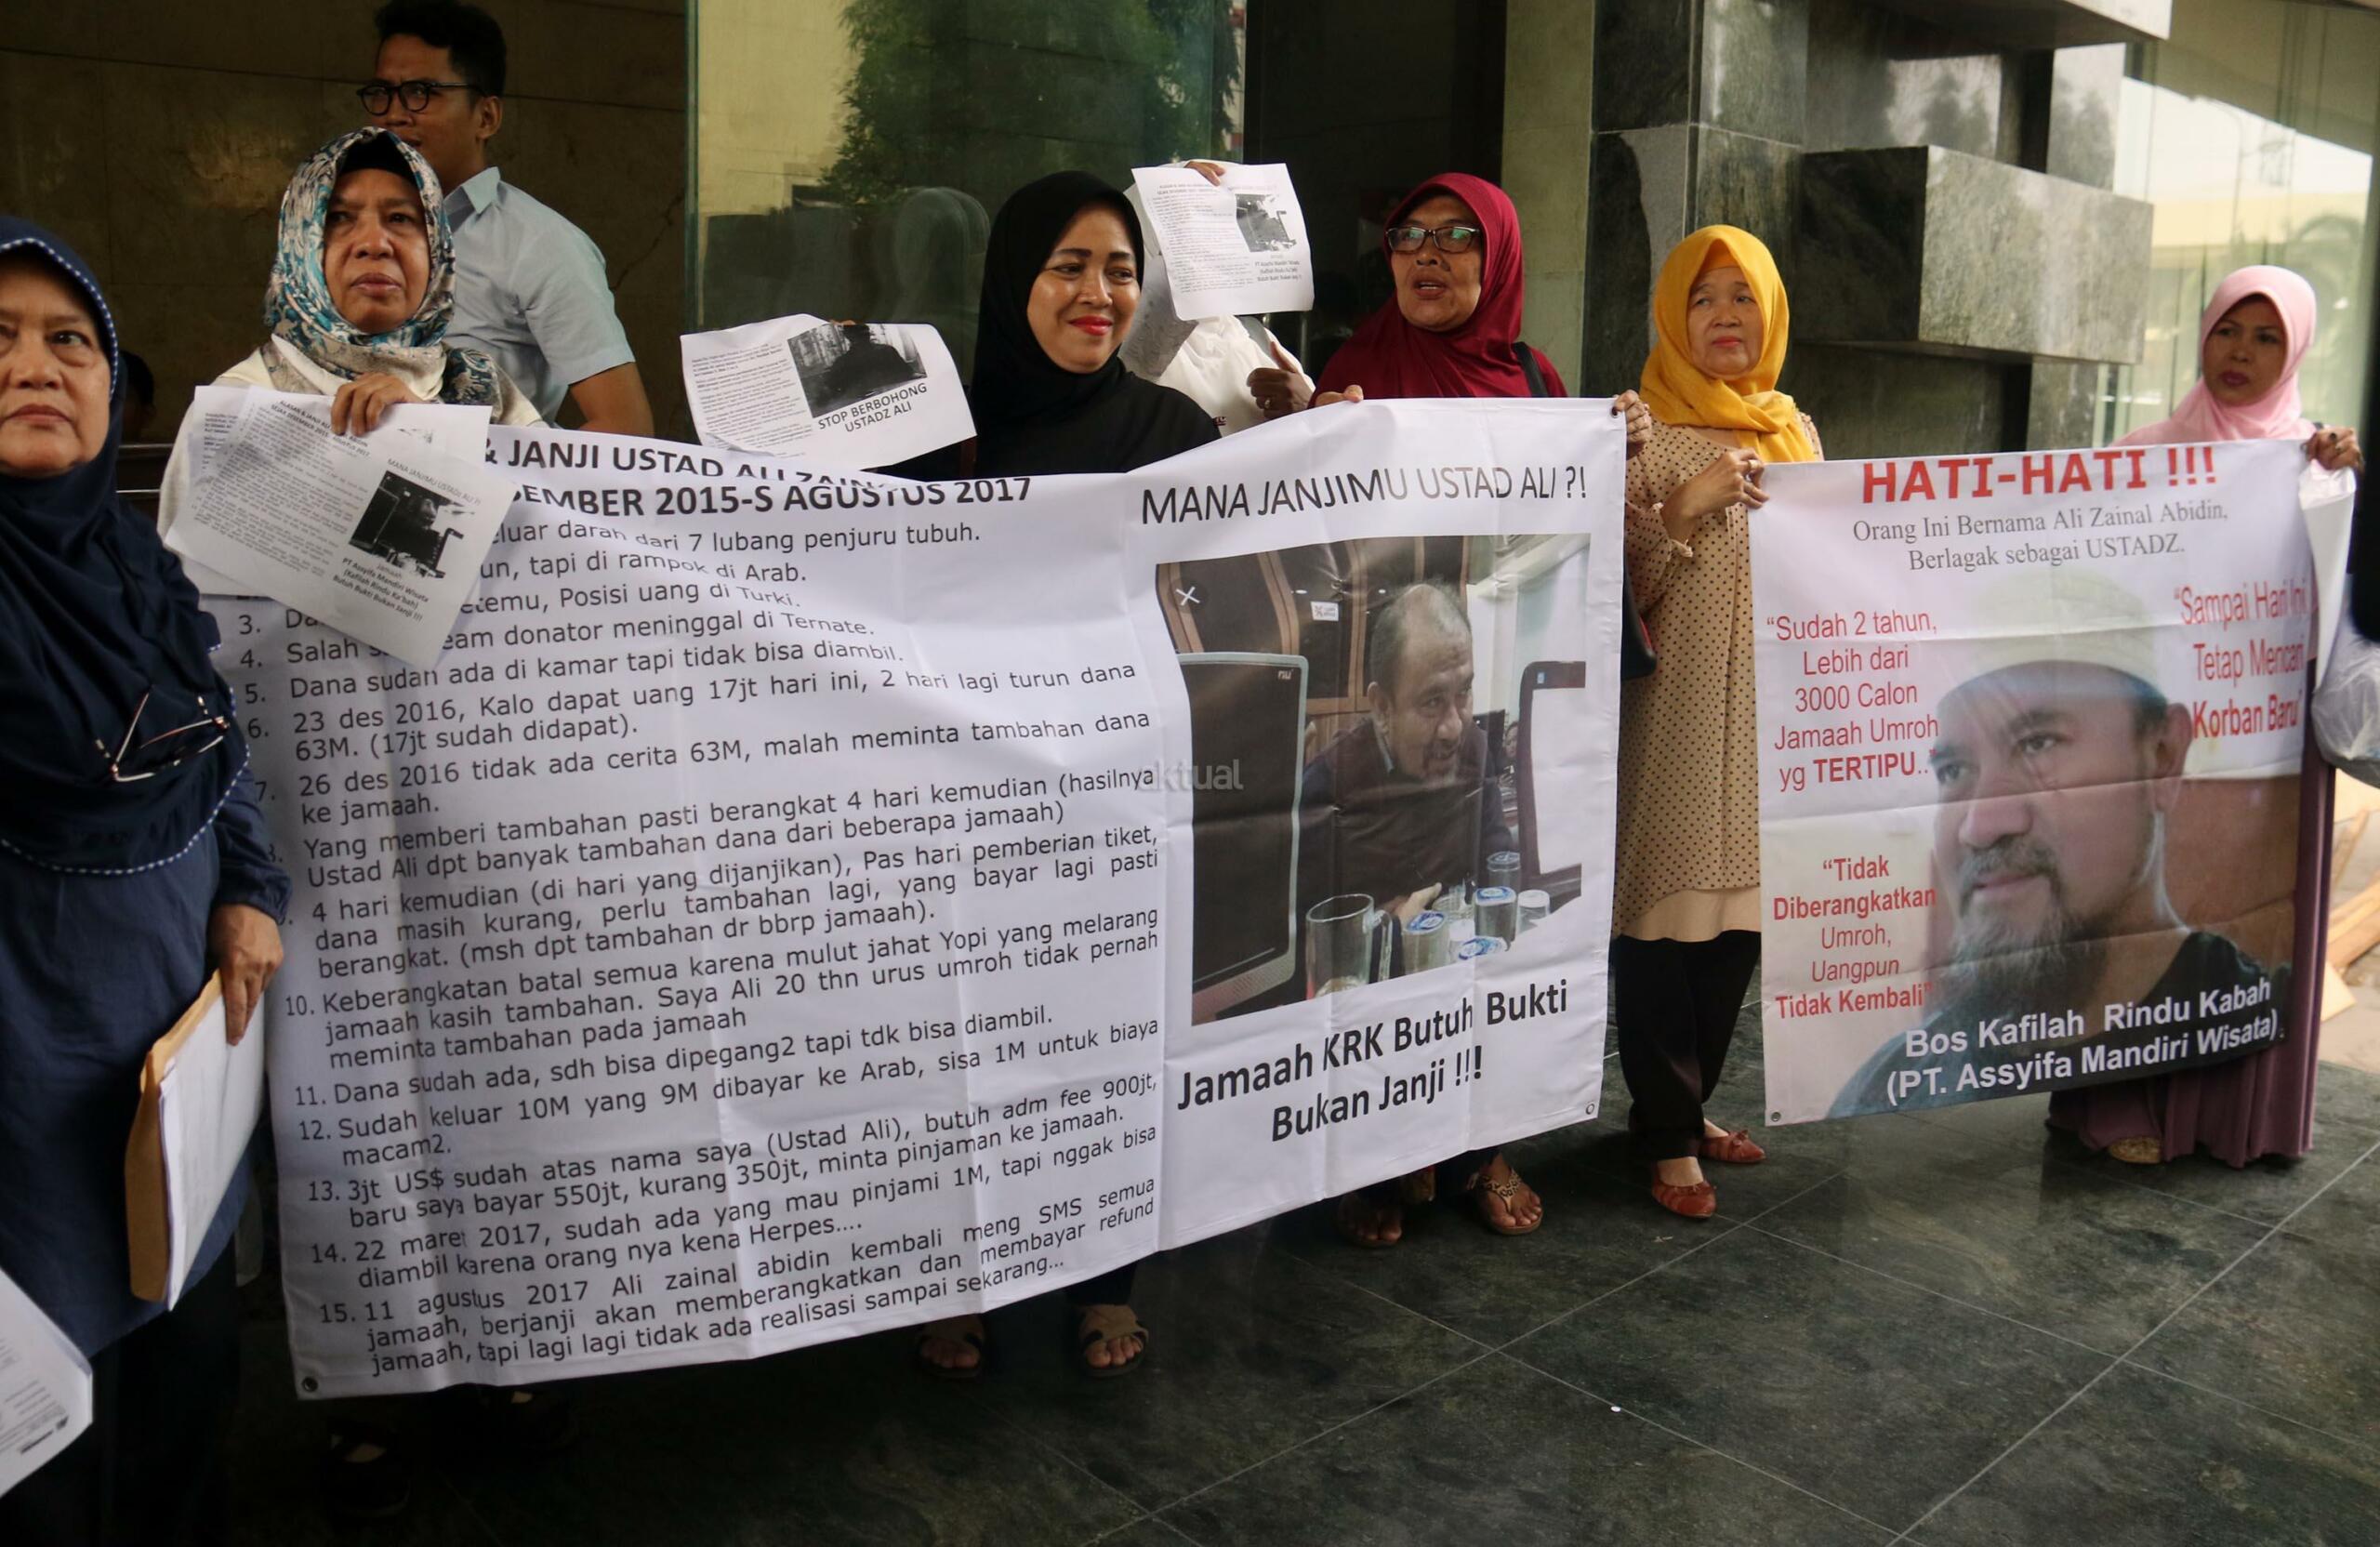 & JANJI USTAD ALI
EMBER 2015-S AGUSTUS 2017
eluar darah dari 7 lubang penjuru tubuh.
un, tapi di rampok di Arab.
3. Da
etemu, Posisi uang di Turki.
4. Salah
eam donator meninggal di Ternate.
5. Dana sudah ada di kamar tapi tidak bisa diambil.
6. 23 des 2016, Kalo dapat uang 17jt hari ini, 2 hari lagi turun dana
63M. (17jt sudah didapat).
7. 26 des 2016 tidak ada cerita 63M, malah meminta tambahan dana
ke jamaah.
Yang memberi tambahan pasti berangkat 4 hari kemudian (hasilnya
Ustad Ali dpt banyak tambahan dana dari beberapa jamaah)
4 hari kemudian (di hari yang dijanjikan), Pas hari pemberian tiket,
dana masih kurang, perlu tambahan lagi, yang bayar lagi pasti
berangkat. (msh dpt tambahan dr bbrp jamaah).
10. Keberangkatan batal semua karena mulut jahat Yopi yang melarang
jamaah kasih tambahan. Saya Ali 20 thn urus umroh tidak pernah
meminta tambahan pada jamaah
11. Dana sudah ada, sdh bisa dipegang2 tapi tdk bisa diambil.
12. Sudah keluar 10M yang 9M dibayar ke Arab, sisa 1M untuk biaya
macam2.
13. 3jt US$ sudah atas nama saya (Ustad Ali), butuh adm fee 900jt,
baru saya bayar 550jt, kurang 350jt, minta pinjaman ke jamaah.
14. 22 maret 2017, sudah ada yang mau pinjami 1M, tapi nggak bisa
diambil karena orang nya kena Herpes....
15. 11 agustus 2017 Ali zainal abidin kembali meng SMS semua
jamaah, berjanji akan memberangkatkan dan membayar refund
jamaah, tapi lagi lagi tidak ada realisasi sampai sekarang...
MANA JANJIMU USTAD ALI ?!
Jamaah KRK Butuh Bukti
Bukan Janji !!!
aktual
HATI-HATI !!!
Orang Ini Bernama Ali Zainal Abidin,
Berlagak sebagai USTADZ.
"Sudah 2 tahun,
Lebih dari
3000 Calon
Jamaah Umroh
yg TERTIPU.."
"Sampai Hari Ini
Tetap Mencari
Korban Baru"
"Tidak
Diberangkatkan
Umroh,
Uangpun
Tidak Kembali"
Bos Kafilah Rindu Kabah
(PT. Assyifa Mandiri Wisata).
STOP BERBOHONG
USTADZ ALI
MANA JANJIMU USTADZ ALI ?!
Jamaah
PT Assyifa Mandiri Wisata
(Kafilah Rindu Ka'bah)
Butuh Bukti Bukan Janji !!!
PT Assyifa Mandiri Wisata